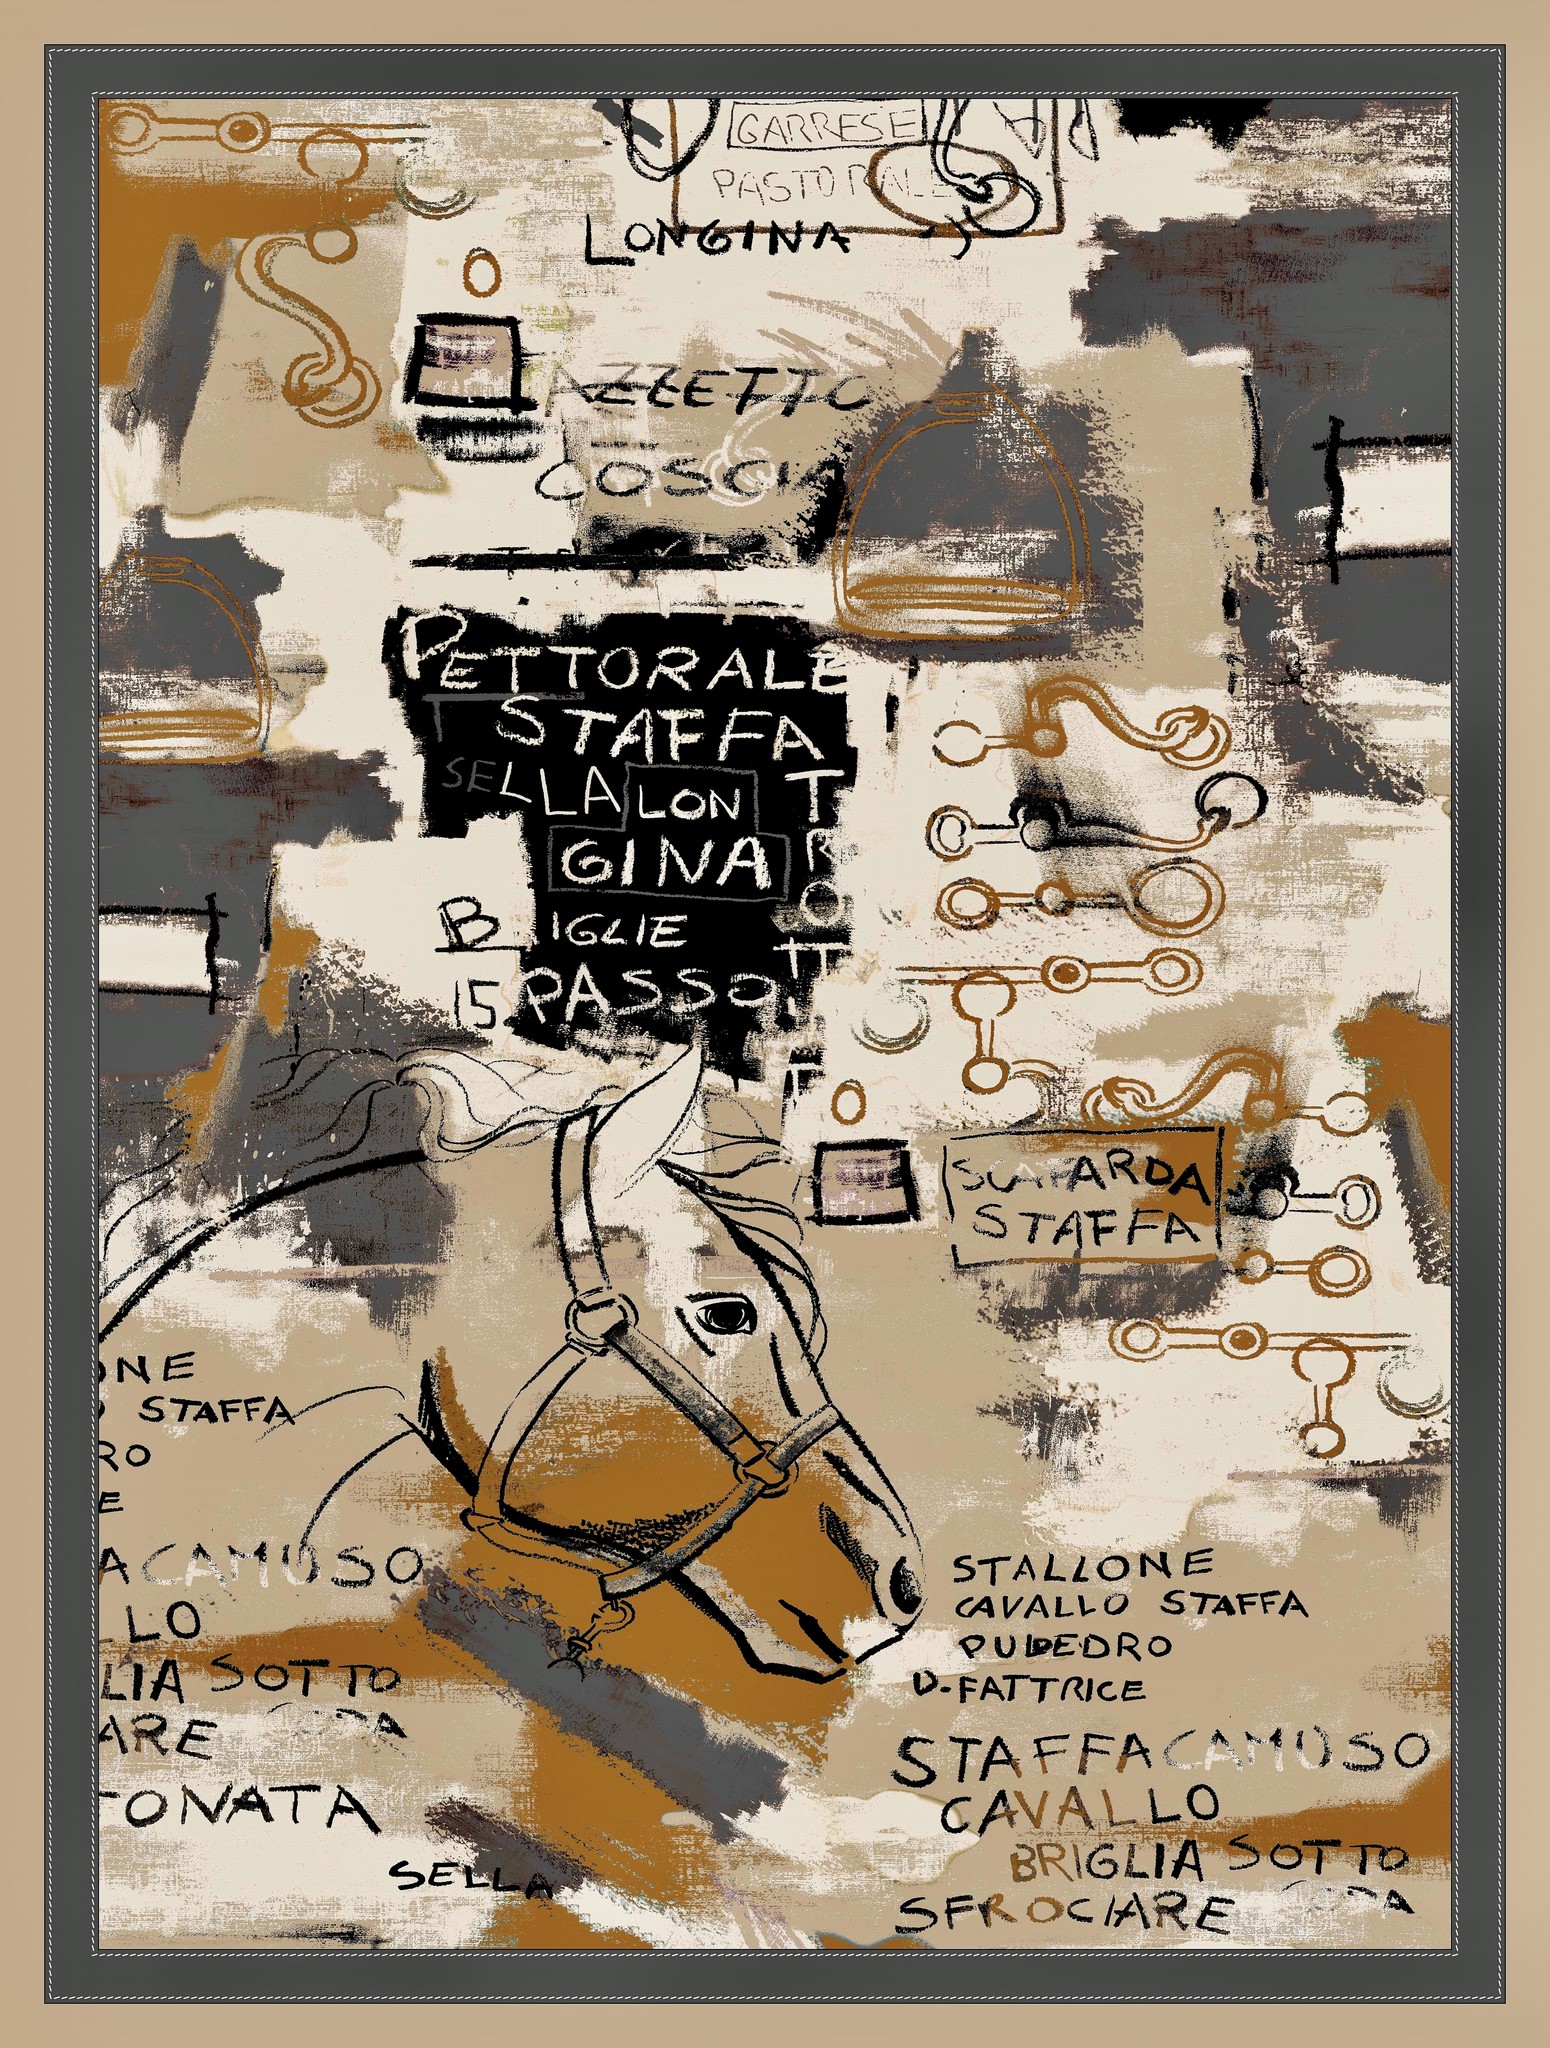 GARRESE
PASTORALE
LONGINA
AZZETTO
COSCIA
PETTORALE
STAFFA
SELLA LON
GINA
TROTT
B
IGLIE
15. PASSO
SCAFARDA
STAFFA
ONE
STAFFA
RO
E
A CAMUSO
LLO
LIA SOTTO
ARE
TONATA
SELLA
STALLONE
CAVALLO STAFFA
PULEDRO
D. FATTRICE
STAFFA CAMUSO
CAVALLO
BRIGLIA SOTTO
SFROCIARE